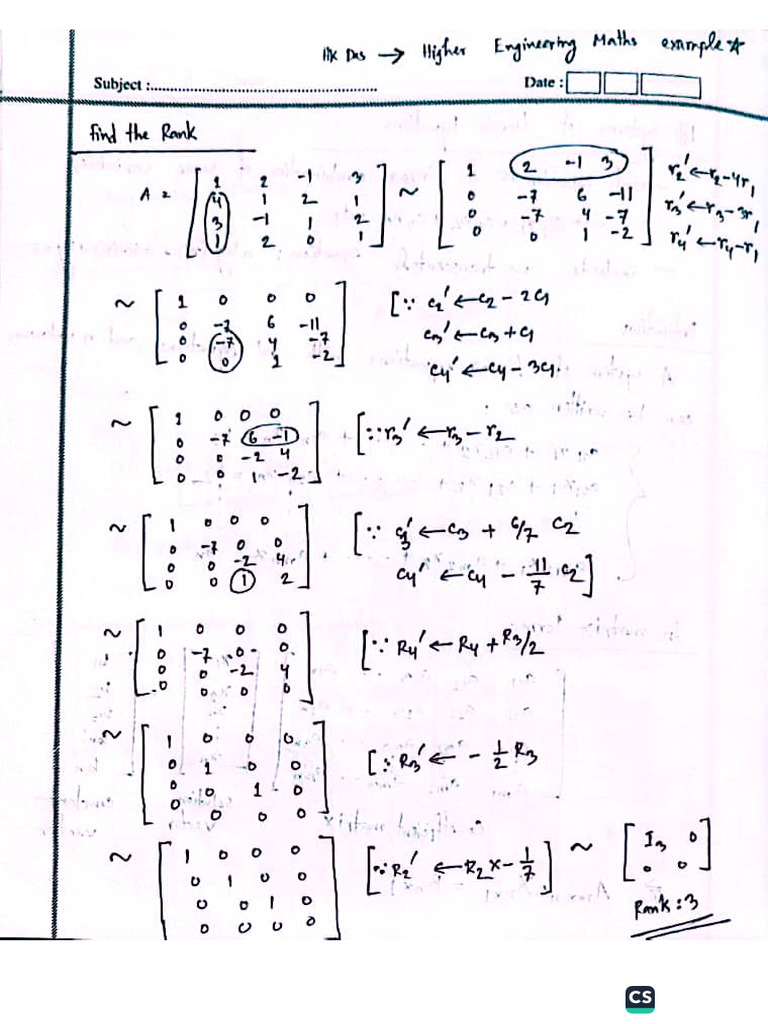 HK Das → Higher Engineering Maths example
Subject :.................................................. Date :
Find the Rank
A = [ 1 2 -1 3 ; 4 1 2 1 ; 3 -1 1 2 ; 1 2 0 1 ] ~ [ 1 2 -1 3 ; 0 -7 6 -11 ; 0 -7 4 -7 ; 0 0 1 -2 ] r2' ← r2-4r1
r3' ← r3-3r1
r4' ← r4-r1
~ [ 1 0 0 0 ; 0 -7 6 -11 ; 0 -7 4 -7 ; 0 0 1 -2 ] [∵ c2' ← c2 - 2c1
c3' ← c3 + c1
c4' ← c4 - 3c1
~ [ 1 0 0 0 ; 0 -7 6 -1 ; 0 0 -2 4 ; 0 0 1 -2 ] [∵ r3' ← r3 - r2
~ [ 1 0 0 0 ; 0 -7 0 0 ; 0 0 -2 4 ; 0 0 1 2 ] [∵ c3' ← c3 + 6/7 c2
c4' ← c4 - 11/7 c2]
~ [ 1 0 0 0 ; 0 -7 0 0 ; 0 0 -2 4 ; 0 0 0 0 ] [∵ R4' ← R4 + R3/2
~ [ 1 0 0 0 ; 0 1 0 0 ; 0 0 1 0 ; 0 0 0 0 ] [∵ R3' ← - 1/2 R3
~ [ 1 0 0 0 ; 0 1 0 0 ; 0 0 1 0 ; 0 0 0 0 ] [∵ R2' ← R2 x - 1/7 ] ~ [ I3 0 ; 0 0 ]
Rank : 3
CS